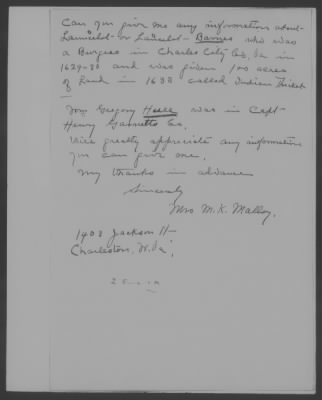 Can you give me any information about
Lancelot or Launcelot - Barnes who was
a Burgess in Charles City Co, Va in
1629-30 and was given 100 acres
of Land in 1633 called Indian Thicket
Gregory Hall was in Capt
Henry Garnetts Co.
Will greatly appreciate any information
you can give me.
My thanks in advance
Sincerely
Mrs M. K. Malloy.
1403 Jackson St
Charleston, W. Va.